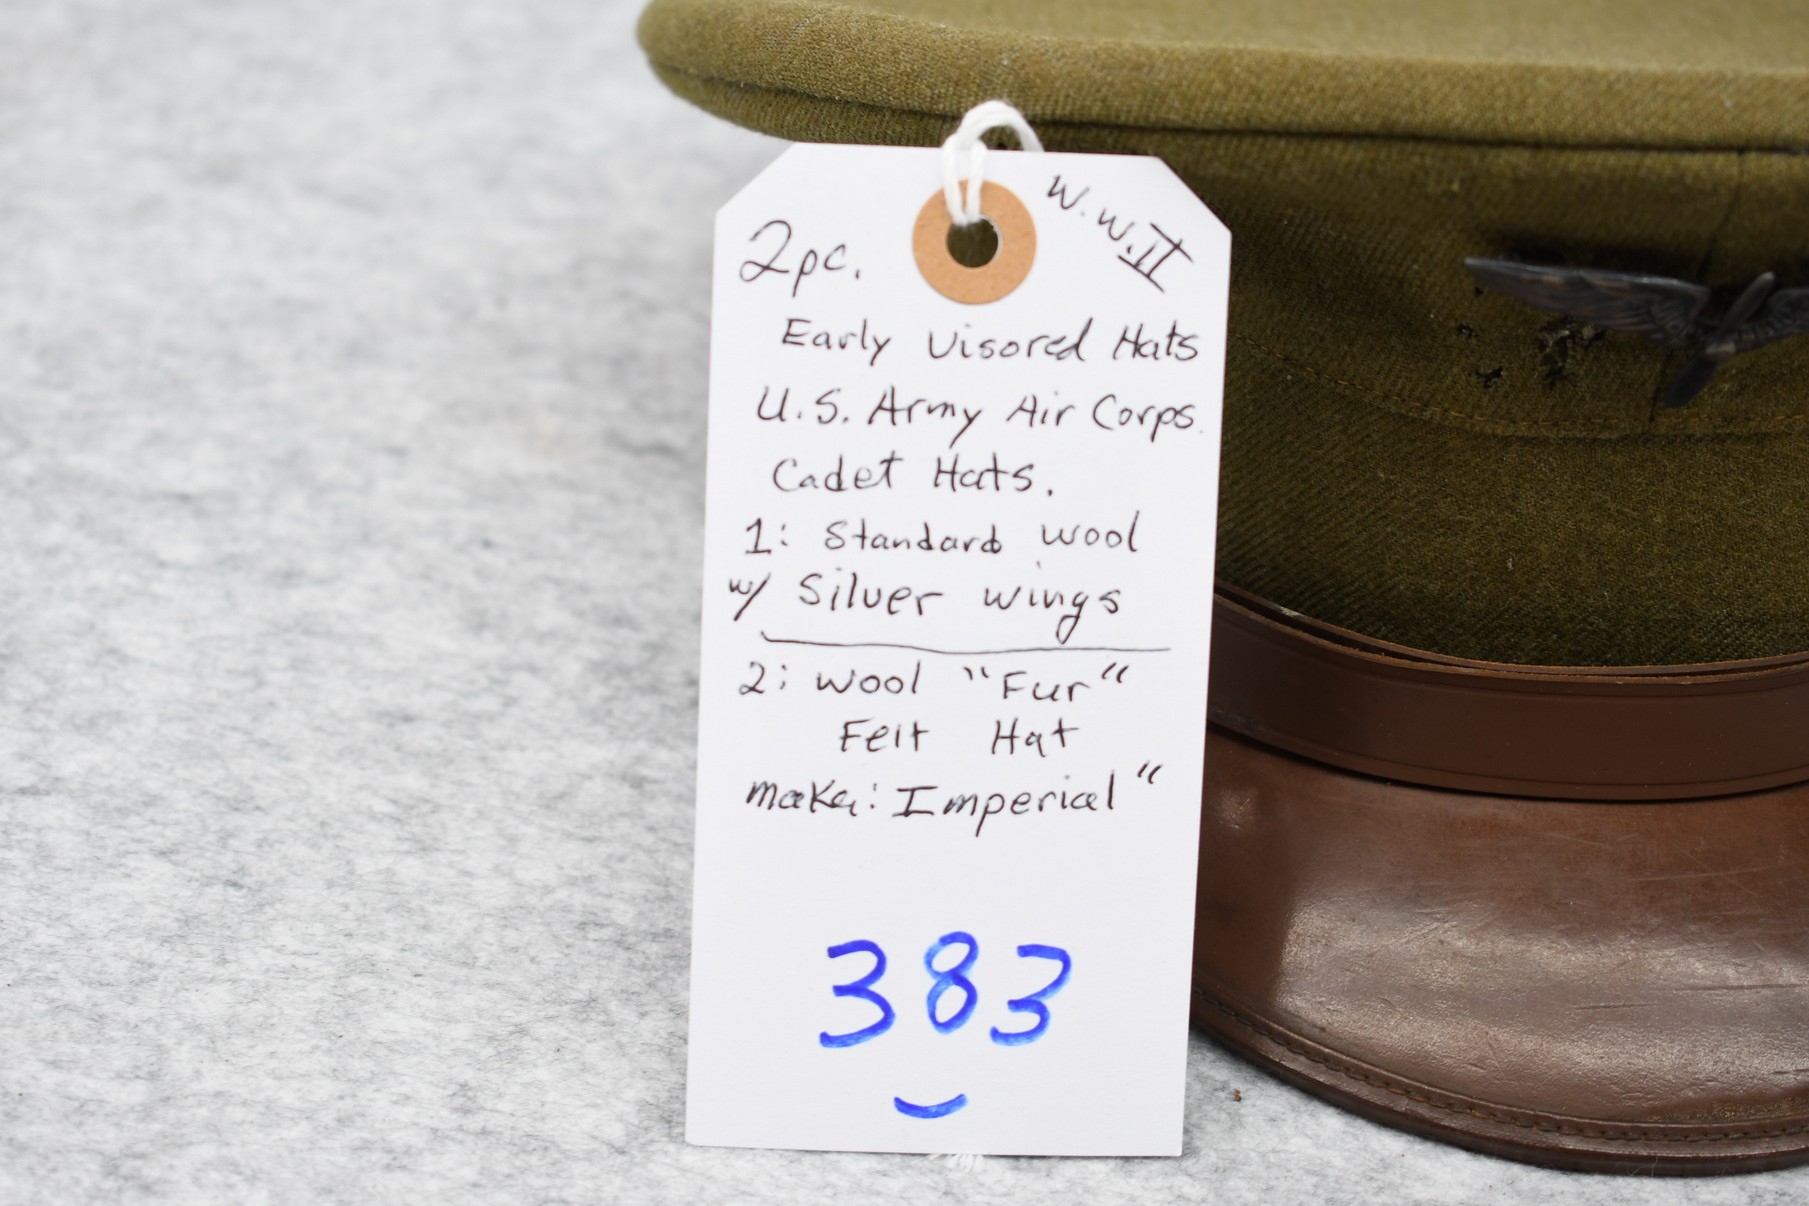 2pc.
W.W.II
Early Visored Hats
U.S. Army Air Corps.
Cadet Hats.
1: Standard Wool
w/ Silver wings
2: Wool "Fur"
Felt Hat
maker: Imperial"
383